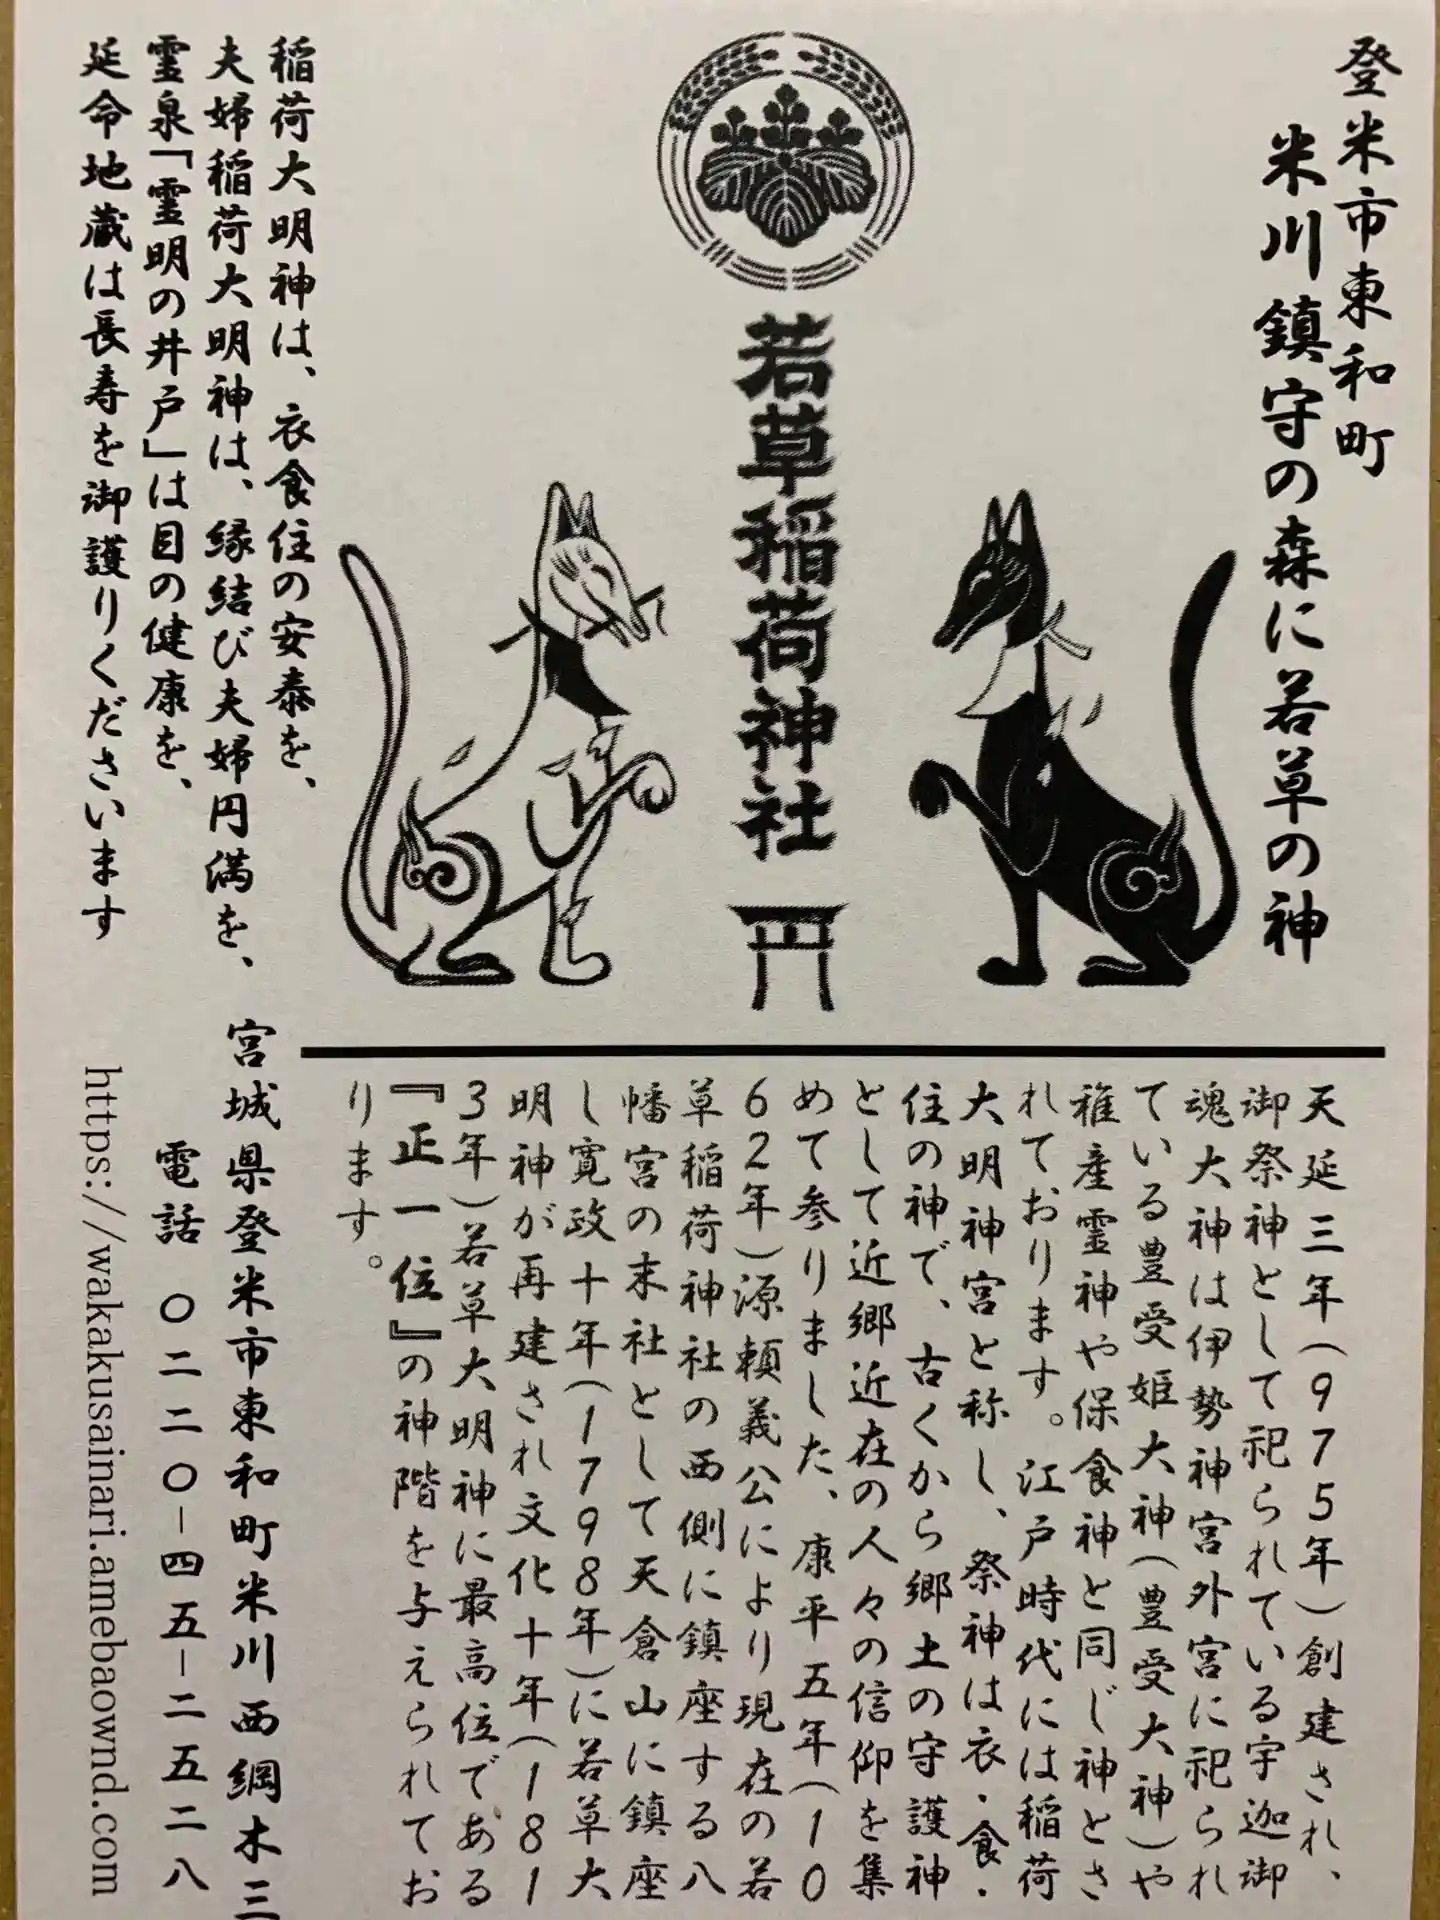 登米市東和町
米川鎮守の森に若草の神
若草稲荷神社
稲荷大明神は、衣食住の安泰を、
夫婦稲荷大明神は、縁結び夫婦円満を、
霊泉「霊明の井戸」は目の健康を、
延命地蔵は長寿を御護りくださいます
天延三年(975年)創建され、
御祭神として祀られている宇迦御
魂大神は伊勢神宮外宮に祀られ
ている豊受姫大神(豊受大神)や
稚産霊神や保食神と同じ神とさ
れております。江戸時代には稲荷
大明神宮と称し、祭神は衣・食・
住の神で、古くから郷土の守護神
として近郷近在の人々の信仰を集
めて参りました、康平五年(10
62年)源頼義公により現在の若
草稲荷神社の西側に鎮座する八
幡宮の末社として天倉山に鎮座
し寛政十年(1798年)に若草大
明神が再建され文化十年(181
3年)若草大明神に最高位である
『正一位』の神階を与えられてお
ります。
宮城県登米市東和町米川西綱木三
電話 〇二二〇-四五-二五二八
https://wakakusainari.amebaownd.com